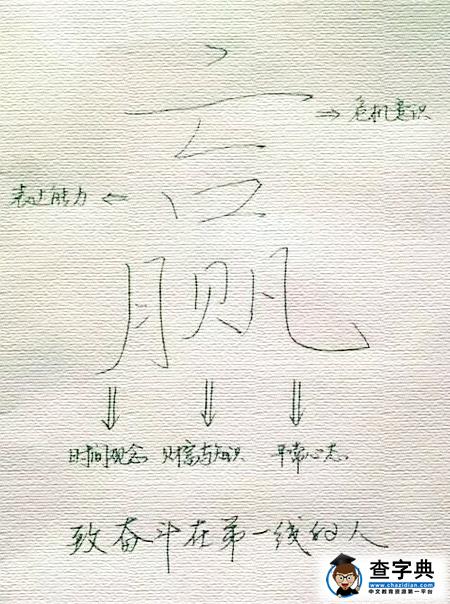 → 危机意识
表达能力 ←
赢
时间观念 财富与知识 平常心态
致奋斗在第一线的人
查字典
中文教育资源第一平台
www.chazidian.com